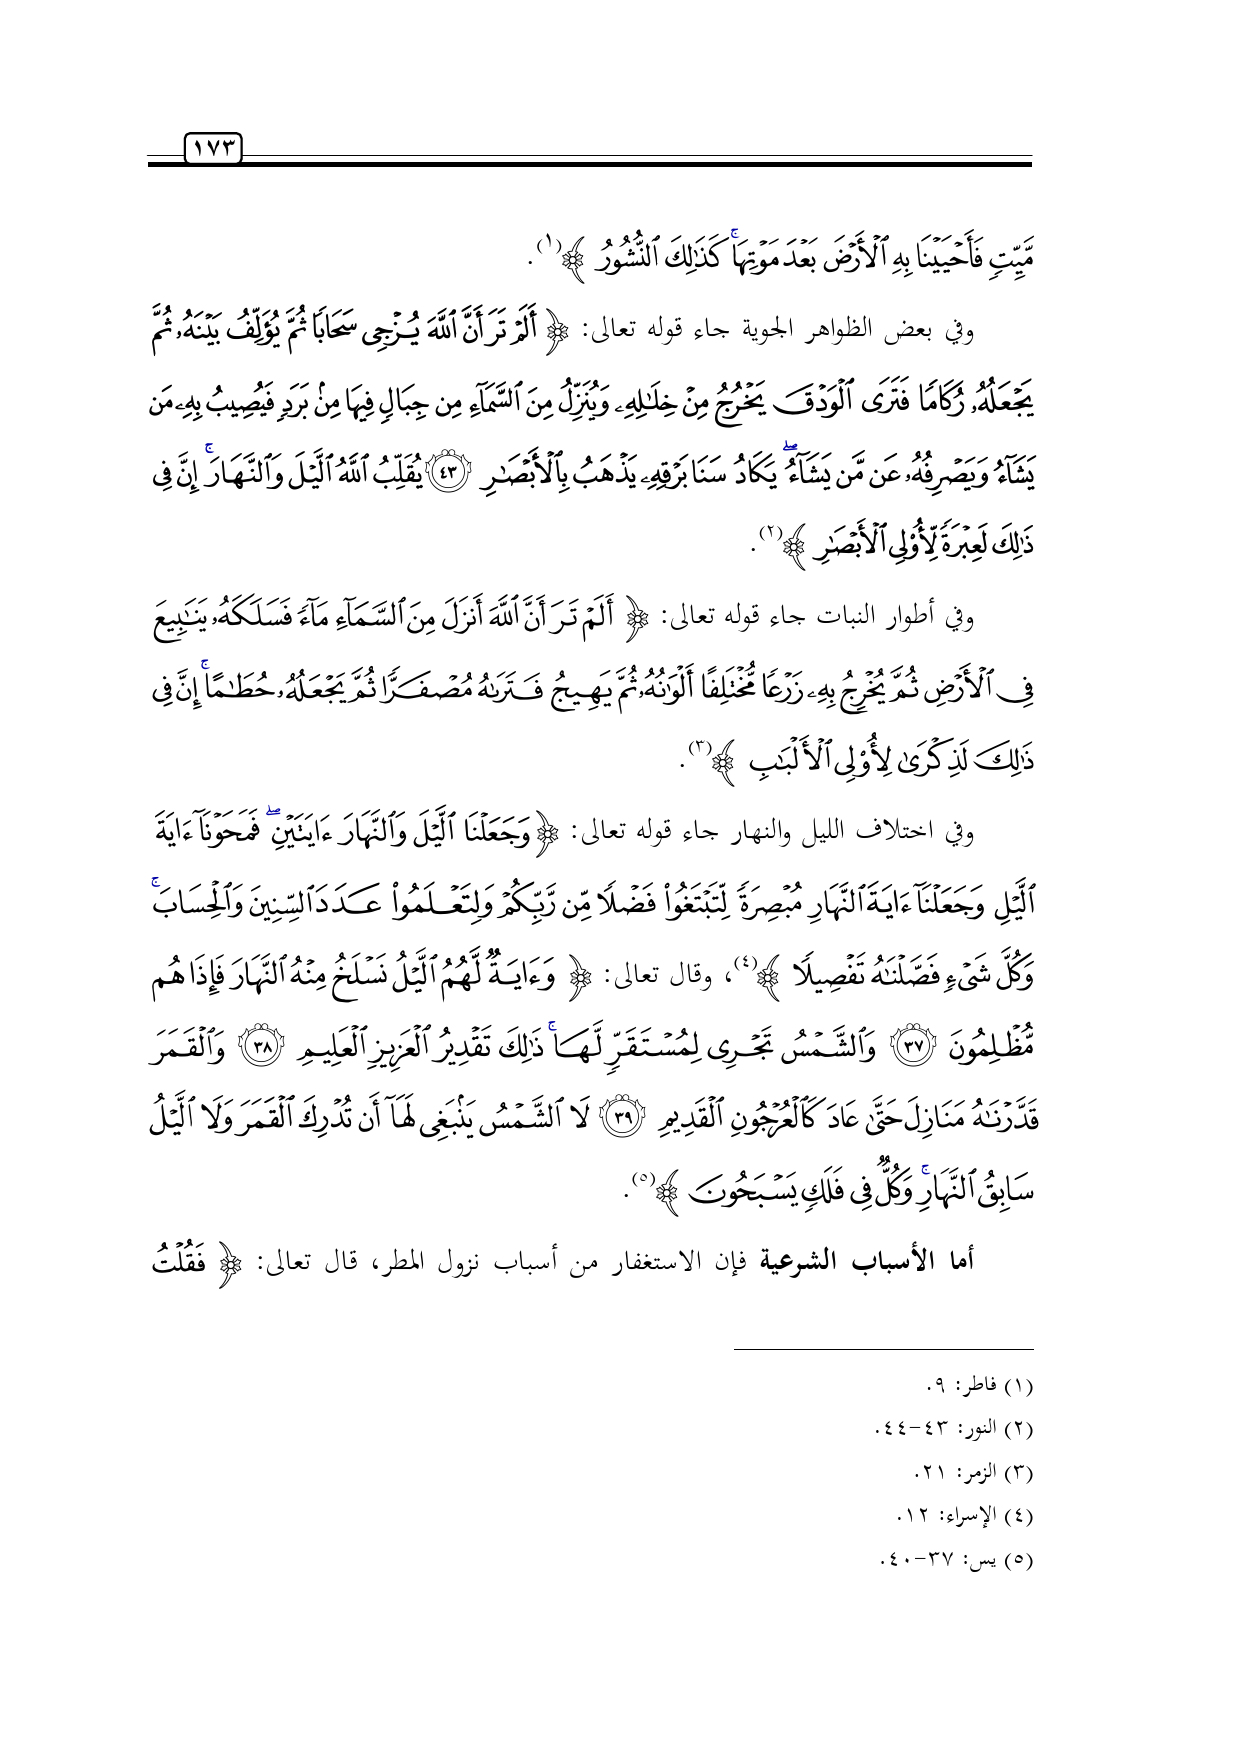 ١٧٣
مَّيِّتٍ فَأَحْيَيْنَا بِهِ ٱلْأَرْضَ بَعْدَ مَوْتِهَا ۚ كَذَٰلِكَ ٱلنُّشُورُ ﴾(١).
وفي بعض الظواهر الجوية جاء قوله تعالى: ﴿ أَلَمْ تَرَ أَنَّ ٱللَّهَ يُزْجِى سَحَابًا ثُمَّ يُؤَلِّفُ بَيْنَهُۥ ثُمَّ
يَجْعَلُهُۥ رُكَامًا فَتَرَى ٱلْوَدْقَ يَخْرُجُ مِنْ خِلَٰلِهِۦ وَيُنَزِّلُ مِنَ ٱلسَّمَآءِ مِن جِبَالٍ فِيهَا مِنۢ بَرَدٍ فَيُصِيبُ بِهِۦ مَن
يَشَآءُ وَيَصْرِفُهُۥ عَن مَّن يَشَآءُ ۖ يَكَادُ سَنَا بَرْقِهِۦ يَذْهَبُ بِٱلْأَبْصَٰرِ ٤٣ يُقَلِّبُ ٱللَّهُ ٱلَّيْلَ وَٱلنَّهَارَ ۚ إِنَّ فِى
ذَٰلِكَ لَعِبْرَةً لِّأُو۟لِى ٱلْأَبْصَٰرِ ﴾(٢).
وفي أطوار النبات جاء قوله تعالى: ﴿ أَلَمْ تَرَ أَنَّ ٱللَّهَ أَنزَلَ مِنَ ٱلسَّمَآءِ مَآءً فَسَلَكَهُۥ يَنَٰبِيعَ
فِى ٱلْأَرْضِ ثُمَّ يُخْرِجُ بِهِۦ زَرْعًا مُّخْتَلِفًا أَلْوَٰنُهُۥ ثُمَّ يَهِيجُ فَتَرَىٰهُ مُصْفَرًّا ثُمَّ يَجْعَلُهُۥ حُطَٰمًا ۚ إِنَّ فِى
ذَٰلِكَ لَذِكْرَىٰ لِأُو۟لِى ٱلْأَلْبَٰبِ ﴾(٣).
وفي اختلاف الليل والنهار جاء قوله تعالى: ﴿ وَجَعَلْنَا ٱلَّيْلَ وَٱلنَّهَارَ ءَايَتَيْنِ ۖ فَمَحَوْنَآ ءَايَةَ
ٱلَّيْلِ وَجَعَلْنَآ ءَايَةَ ٱلنَّهَارِ مُبْصِرَةً لِّتَبْتَغُوا۟ فَضْلًا مِّن رَّبِّكُمْ وَلِتَعْلَمُوا۟ عَدَدَ ٱلسِّنِينَ وَٱلْحِسَابَ ۚ
وَكُلَّ شَىْءٍ فَصَّلْنَٰهُ تَفْصِيلًا ﴾(٤)، وقال تعالى: ﴿ وَءَايَةٌ لَّهُمُ ٱلَّيْلُ نَسْلَخُ مِنْهُ ٱلنَّهَارَ فَإِذَا هُم
مُّظْلِمُونَ ٣٧ وَٱلشَّمْسُ تَجْرِى لِمُسْتَقَرٍّ لَّهَا ۚ ذَٰلِكَ تَقْدِيرُ ٱلْعَزِيزِ ٱلْعَلِيمِ ٣٨ وَٱلْقَمَرَ
قَدَّرْنَٰهُ مَنَازِلَ حَتَّىٰ عَادَ كَٱلْعُرْجُونِ ٱلْقَدِيمِ ٣٩ لَا ٱلشَّمْسُ يَنۢبَغِى لَهَآ أَن تُدْرِكَ ٱلْقَمَرَ وَلَا ٱلَّيْلُ
سَابِقُ ٱلنَّهَارِ ۚ وَكُلٌّ فِى فَلَكٍ يَسْبَحُونَ ﴾(٥).
أما الأسباب الشرعية فإن الاستغفار من أسباب نزول المطر، قال تعالى: ﴿ فَقُلْتُ
(١) فاطر: ٩.
(٢) النور: ٤٣-٤٤.
(٣) الزمر: ٢١.
(٤) الإسراء: ١٢.
(٥) يس: ٣٧-٤٠.